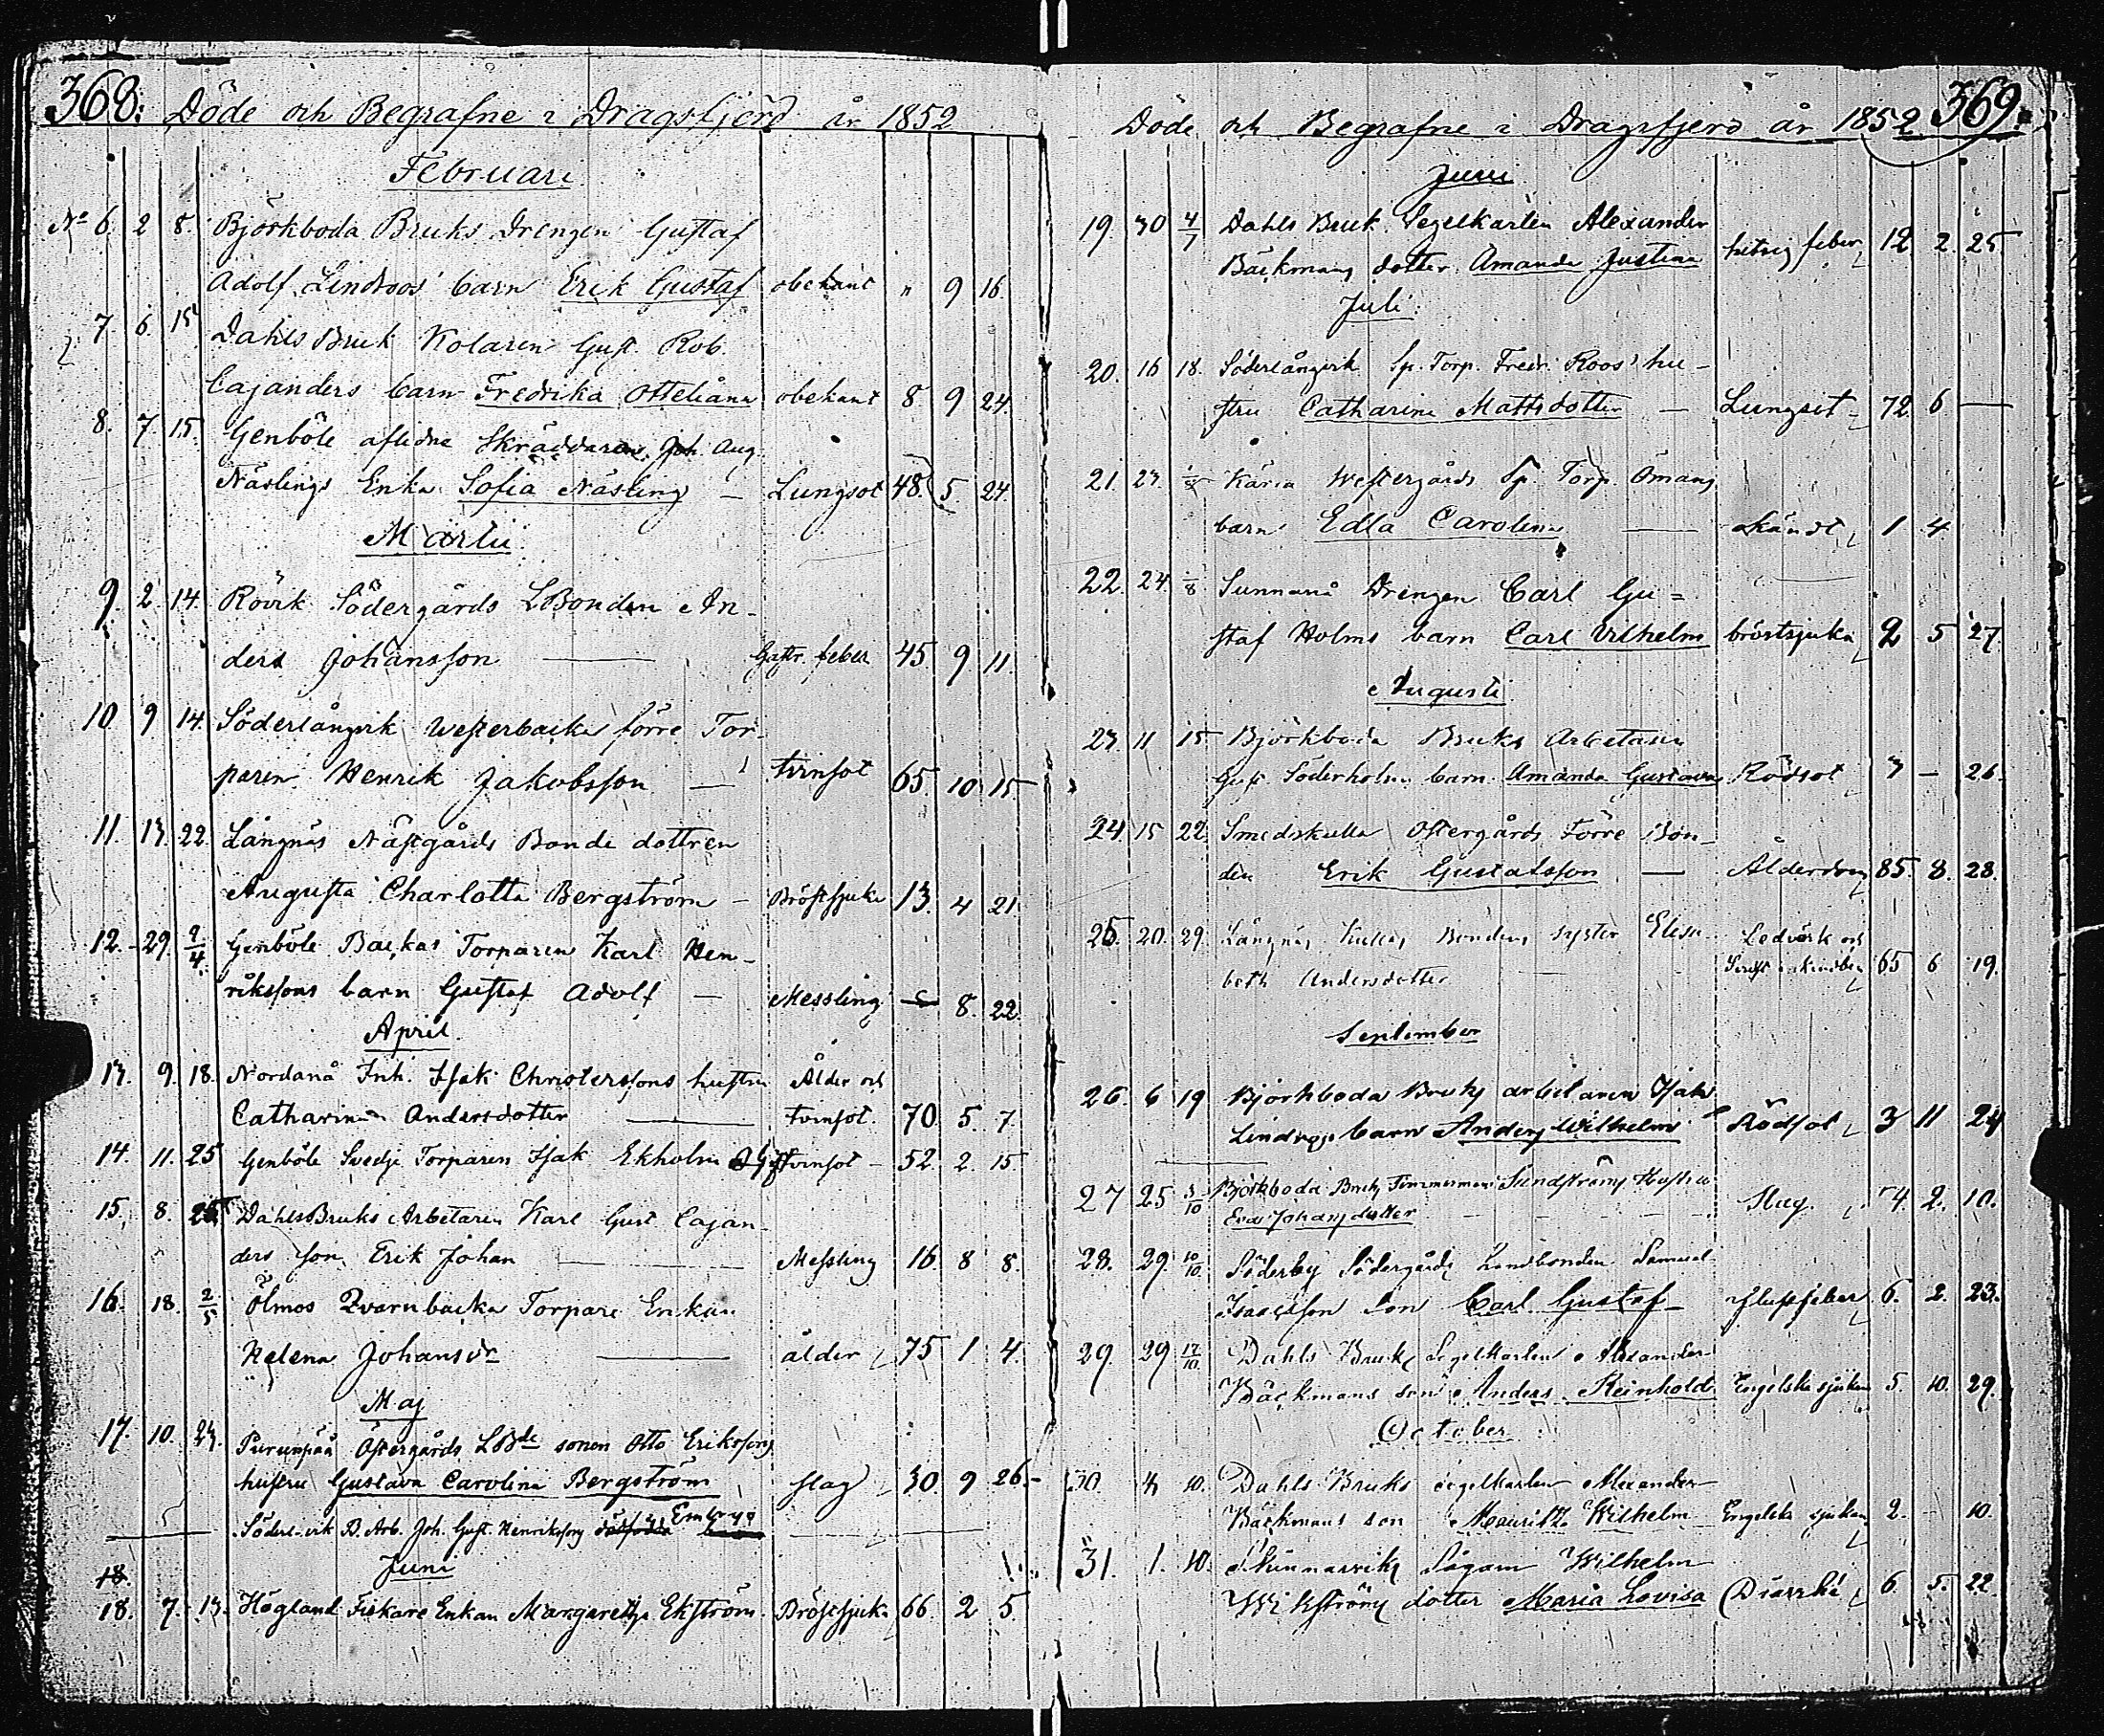 368: Döde och Begrafne i Dragsfjerd år 1852
Februari
No 6. 2 8. Björkboda Bruks Drengen Gustaf
Adolf Lindroos' barn Erik Gustaf obekant " 9 16.
7. 6. 15 Dahls Bruk Kolaren Gust. Rob.
Cajanders barn Fredrika Otteliana obekant 8 9 24.
8. 7. 15. Genböle aflidne Skräddaren Joh. Aug.
Näslings Enka Sofia Näsling – Lungsot 48. 5. 24.
Martii
9. 2. 14. Rövik Södergårds LBonden An-
ders Johansson — Gastr. feber 45. 9 11.
10. 9 14. Söderlångvik Westerbacka förre Tor-
paren Henrik Jakobsson — tvinsot 65. 10. 15
11. 13. 22. Långnäs Nästgårds Bonde dottren
Augusta Charlotta Bergström – Bröstsjuka 13. 4 21
12. 29. 9/4 Genböle Backas Torparen Karl Hen-
rikssons barn Gustaf Adolf — Messling — 8. 22.
April
13. 9. 18. Nordanå Inh. Isak Christerssons hustru Ålder och
Catharina Andersdotter — tvinsot. 70. 5. 7.
14. 11. 25 Genböle Svedje Torparen Isak Ekholm tvinsot – 52. 2. 15
15. 8. 25 Dahls Bruks Arbetaren Karl Gust Cajan-
ders son Erik Johan — Messling 16 8 8.
16. 18. 2/5 Ölmos Qvarnbacka Torpare Enkan
Helena Johansdr — ålder 75 1 4.
Maj
17. 10. 23. Purunpää Östergårds LBde sonen Otto Erikssons
hustru Gustava Carolina Bergström slag 30 9 26.–
B. Arb. Joh. Gust. Henrikssons dödfödda Embryo
Juni
18.
18. 7. 13. Högland Fiskare Enkan Margaretha Ekström. Bröstsjuka 66. 2 5.
Döde och Begrafne i Dragsfjerd år 1852 369.
Juni
19. 30 4/7 Dahls Bruk Segelkarlen Alexander
Bäckmans dotter Amanda Justina hetsig feber 12. 2. 25
Juli
20. 16 18. Söderlångvik Sp. Torp. Fredr. Roos' hu-
stru Catharina Mattsdotter — Lungsot 72. 6 —
21. 23. Kärra Westergårds Sp. Torp. Ömans
barn Edla Carolina — okändt 1 4
22. 24. 1/8 Sunnanå Drengen Carl Gu=
staf Holms barn Carl Vilhelm bröstsjuka 2 5 27.
Augusti
23. 11 15 Björkboda Bruks Arbetaren
Gust. Söderholms barn Amanda Gustava Rödsot 3 — 26.
24. 15 22. Smedskulla Östergårds Förre Bon-
den Erik Gustafsson — Ålderdom 85. 8. 28.
25. 20. 29. Långnäs Bondens syster Elisa- Ledvärk och
beth Andersdotter 65 6 19.
September
26. 6 19 Björkboda Bruks arbetaren Isaks
Lindroos barn Anders Wilhelm Rödsot 3 11 24
27 25 3/10 Björkboda Bruks Timmerman Sundströms Hustru
Eva Johansdotter — Slag. 74. 2. 10.
28. 29. 10/10. Söderby Södergårds Landbonden Samuel
Isacsson Son Carl Gustaf — Slussfeber 6. 2. 23.
29. 29 17/10. Dahls Bruks Segelkarlen Alexander
Bäckmans son Anders Reinhold Engelska sjukan 5. 10. 29.
October
30. 4 10. Dahls Bruks segelkarlen Alexander
Bäckmans son Mauritz Wilhelm Engelska sjukan 2. — 10.
31. 1. 10. Skinnarviks Sågarn Wilhelm
Wikströms dotter Maria Lovisa Diarrhé 6. 5. 22